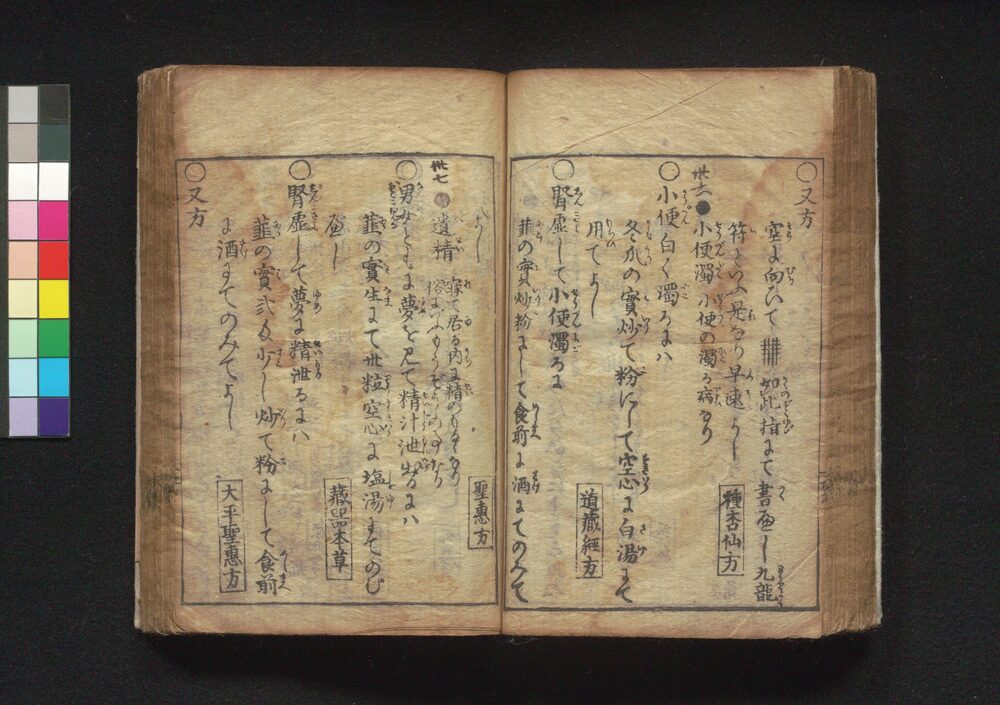 〇又方
空に向いて 如此指にて書べし九龍
符といふ是なり早速よし
種杏仙方
卅六●小便濁 小便の濁る病なり
〇小便白く濁るには
冬瓜の實炒て粉にして空心に白湯にて
用てよし
道藏經方
〇腎虚して小便濁るに
韮の實炒粉にして食前に酒にてのみて
よし
聖惠方
卅七●遺精 寐て居る内に精のもるるなり
俗にいふ
〇男女ともに夢を見て精汁泄出るには
韮の實生にて卅粒空心に塩湯にてのむ
べし
藏器本草
〇腎虚して夢に精泄るには
韮の實弐匁少し炒て粉にして食前
に酒にてのみてよし
大平聖惠方
〇又方